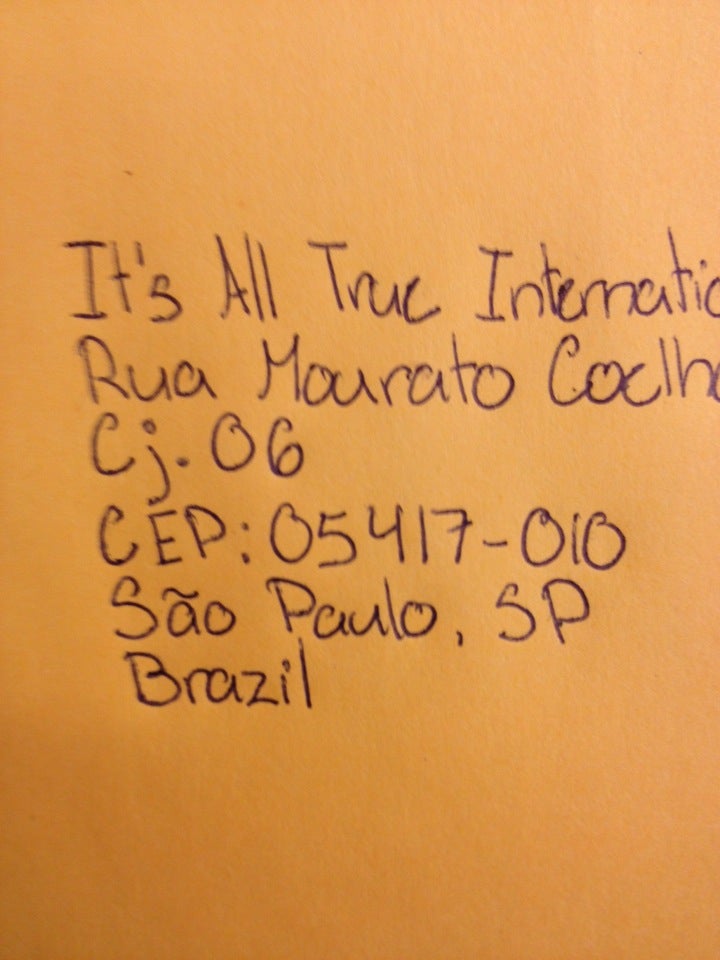 It's All True Internatio
Rua Mourato Coelh
Cj. 06
CEP: 05417-010
São Paulo, SP
Brazil